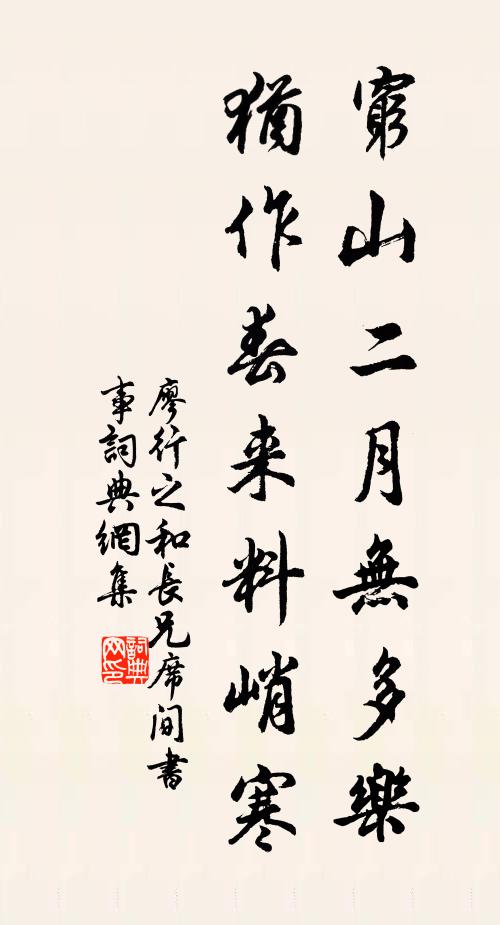 窮山二月無多樂
猶作春来料峭寒
廖行之和長兄席间書
事詞典網集
詞典
网印